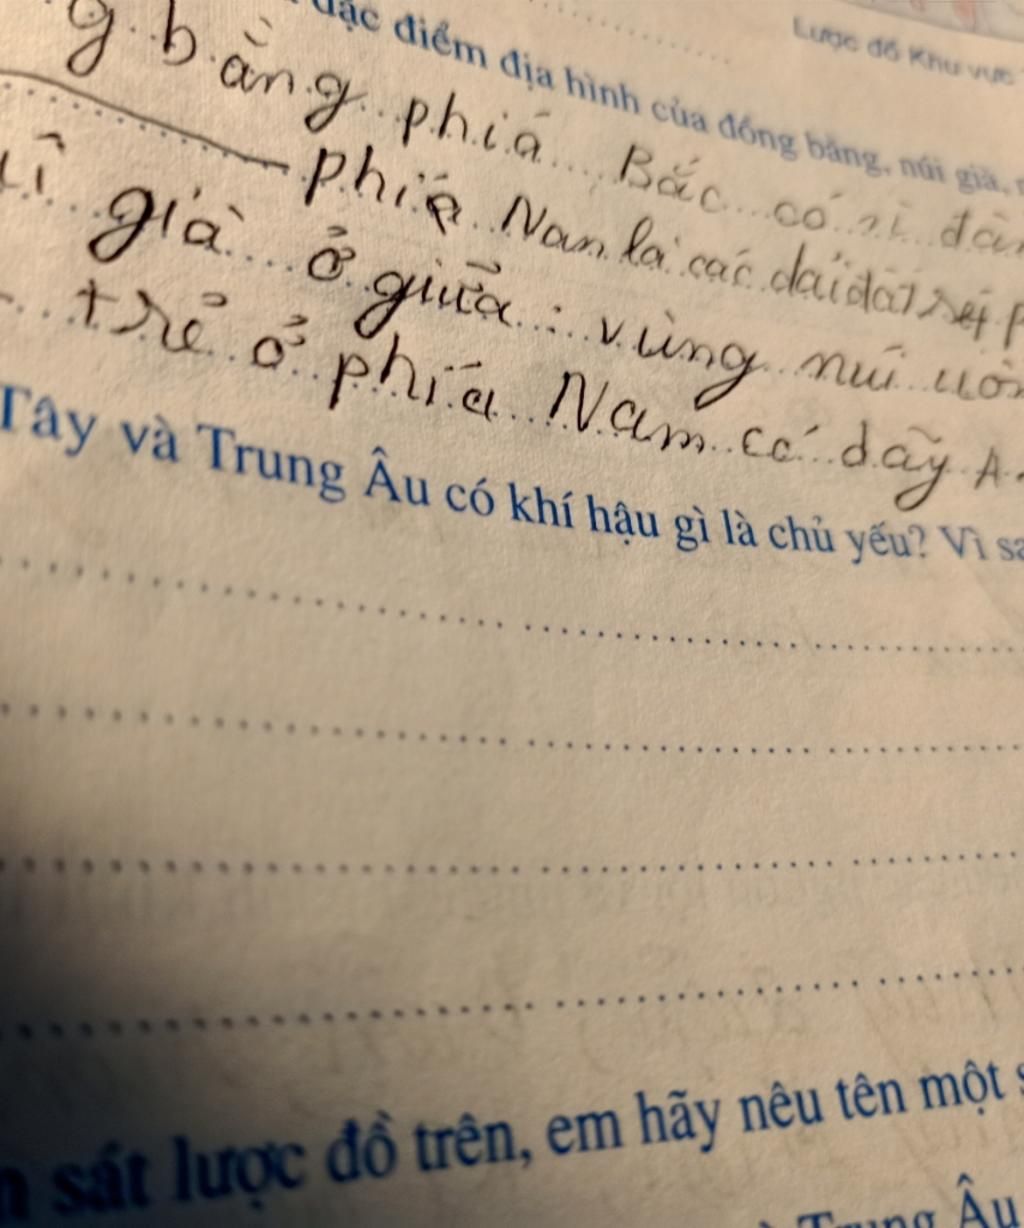 Lược đồ Khu vực
đặc điểm địa hình của đồng bằng, núi già,
g bằng phiá Bắc có
phiá Nan là các dải đất
già ở giữa : vùng núi
trẻ ở phiá Nam có dãy A
Tây và Trung Âu có khí hậu gì là chủ yếu? Vì sa
sát lược đồ trên, em hãy nêu tên một s
Trung Âu